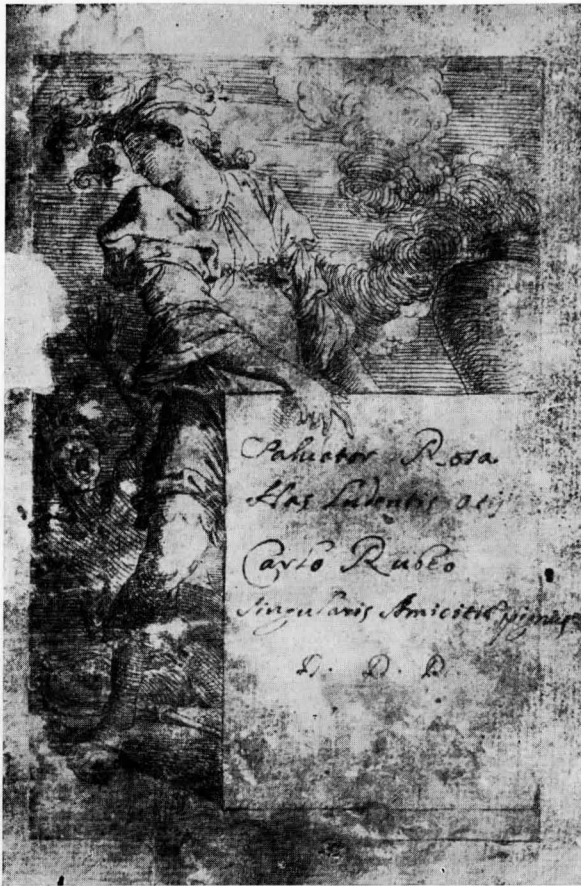 Salvator Rosa
Has Ludentis otij
Carlo Rubeo
Singularis Amicitiæ pignus
D. D. D.